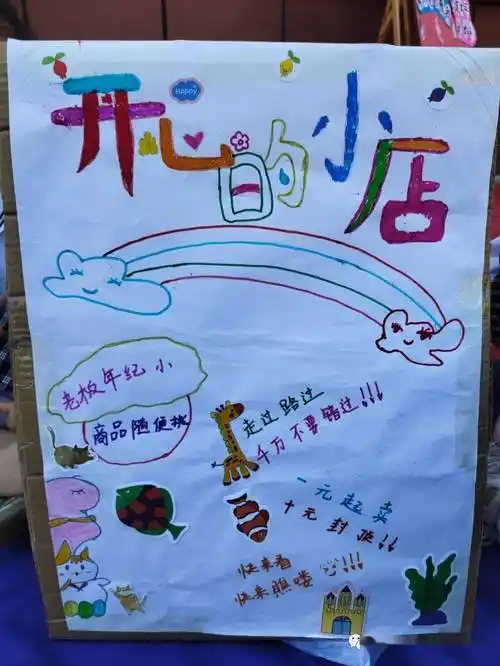 开心的小店
Happy
老板年纪小
商品随便挑
走过路过
千万不要错过!!!
一元起卖
十元封顶!!
快来看
快来瞧喽
!!!